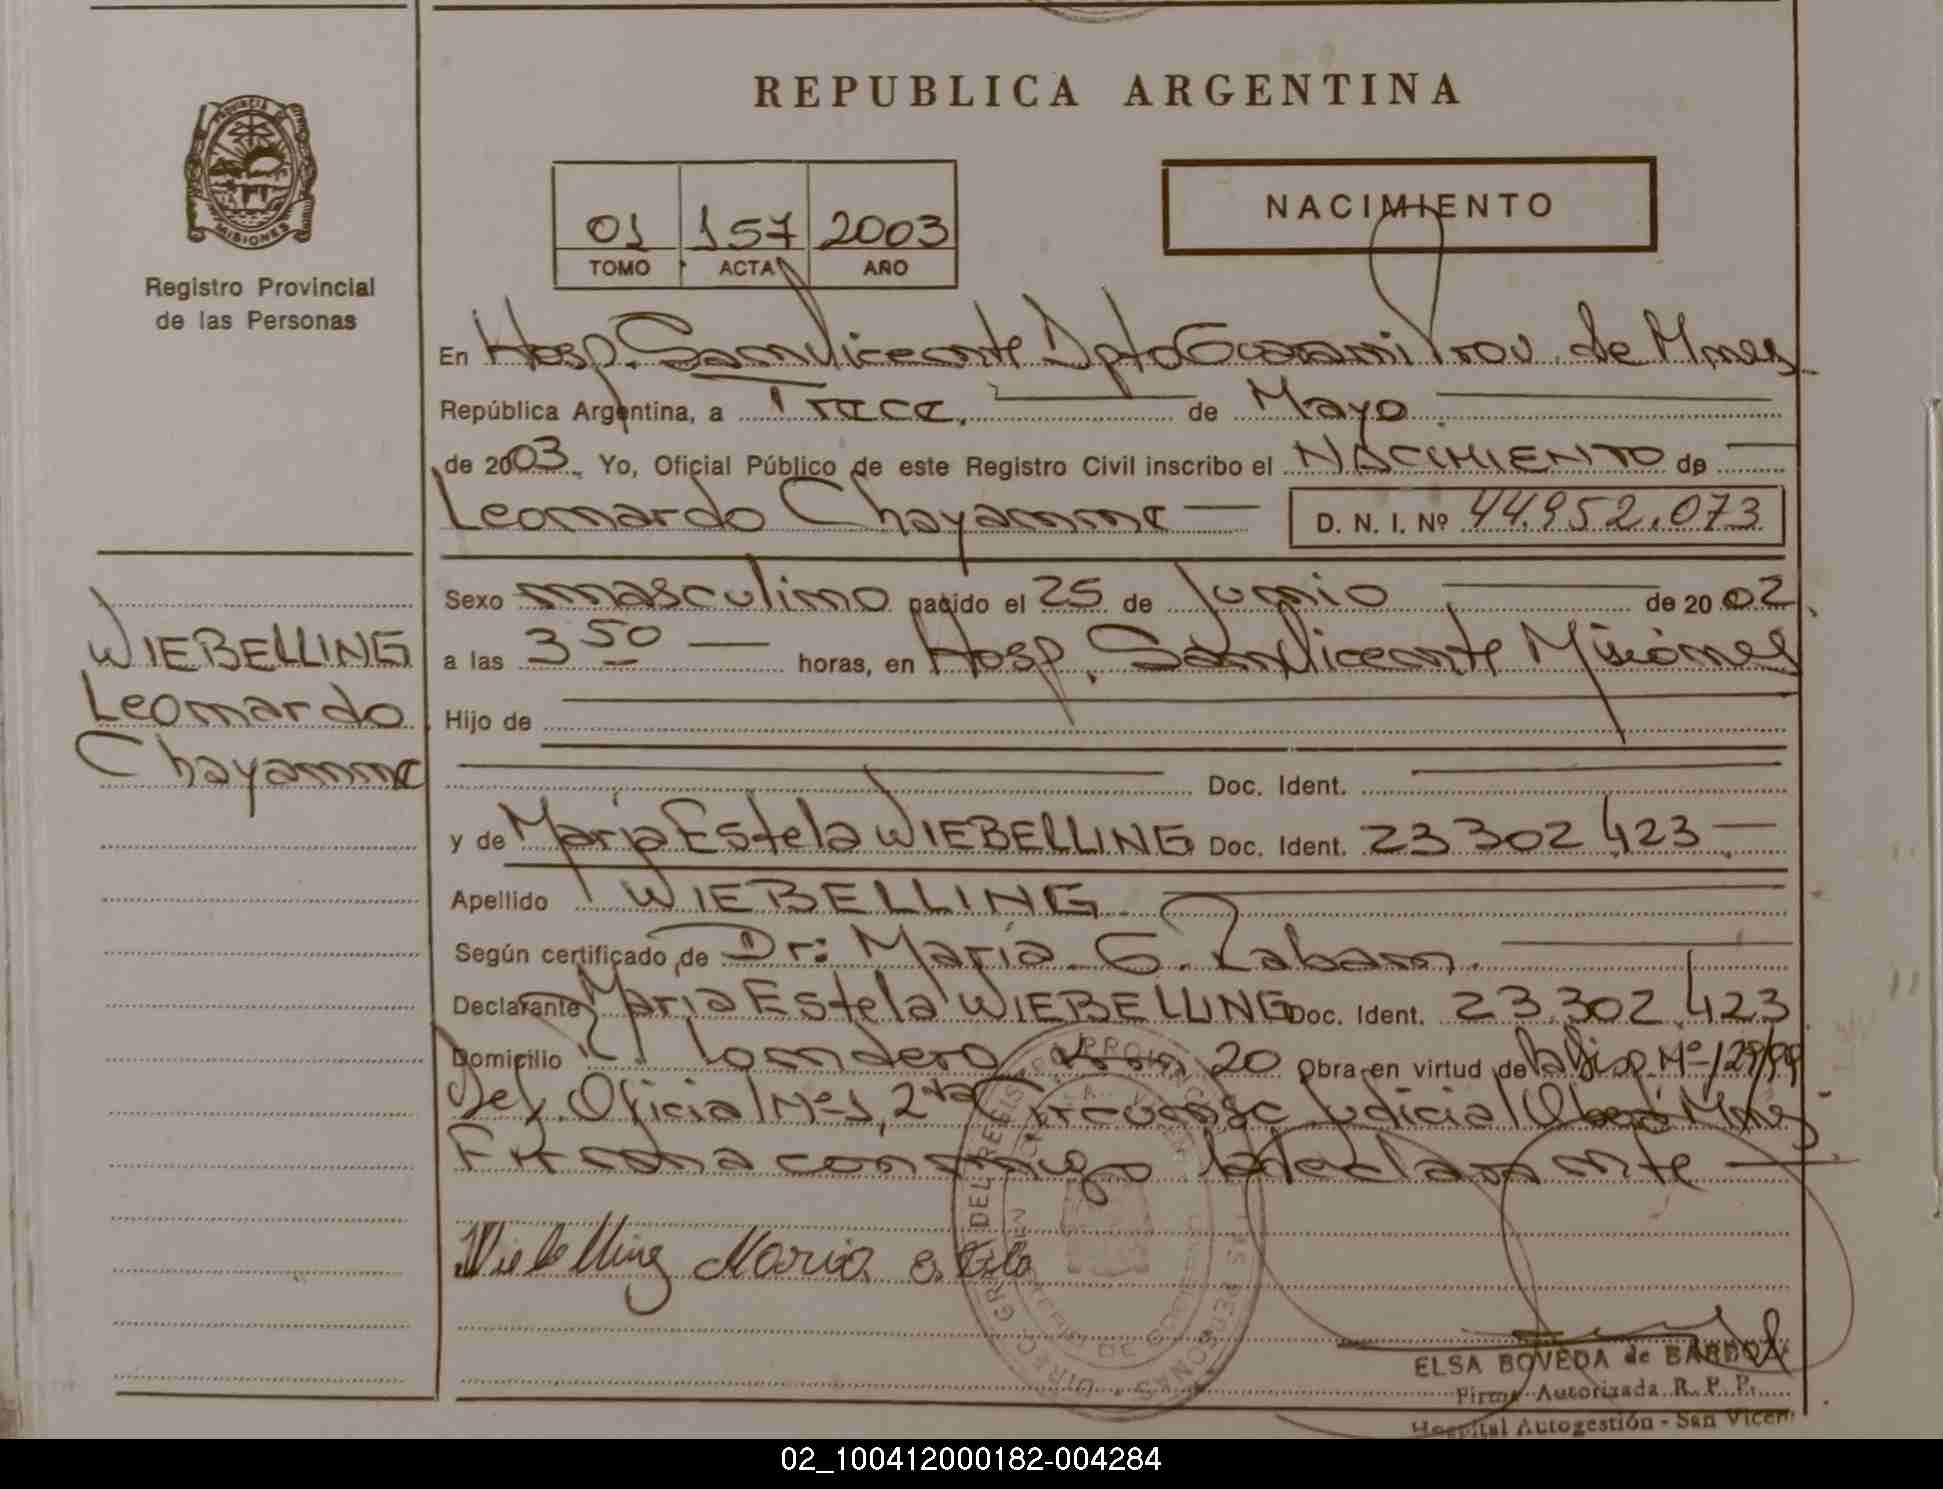 REPUBLICA ARGENTINA
PROVINCIA
MISIONES
Registro Provincial
de las Personas
01 157 2003
TOMO ACTA AÑO
NACIMIENTO
En Hosp. San Vicente Dpto Guarani Prov. de Mnes
República Argentina, a Trece de Mayo
de 2003 Yo, Oficial Público de este Registro Civil inscribo el NACIMIENTO de
Leonardo Chayanne D. N. I. Nº 44.952.073
Sexo masculino nacido el 25 de Junio de 20 02
a las 3 50 horas, en Hosp. San Vicente Misiones
Hijo de
Doc. Ident.
y de Maria Estela WIEBELLING Doc. Ident. 23 302 423
Apellido WIEBELLING
Según certificado de Dr: María G. Zaban
Declarante Maria Estela WIEBELLING Doc. Ident. 23.302.423
Domicilio Londero Km 20 Obra en virtud de la Disp Nº 129/99
Def. Oficial Nº 1, 2da Circunsc Judicial Oberá Mnes
Firma conmigo la declarante
WIEBELLING
Leonardo
Chayanne
Wiebelling Maria Estela
ELSA BOVEDA de BARBOZA
Firma Autorizada R. P. P.
Hospital Autogestión - San Vicente
02_100412000182-004284